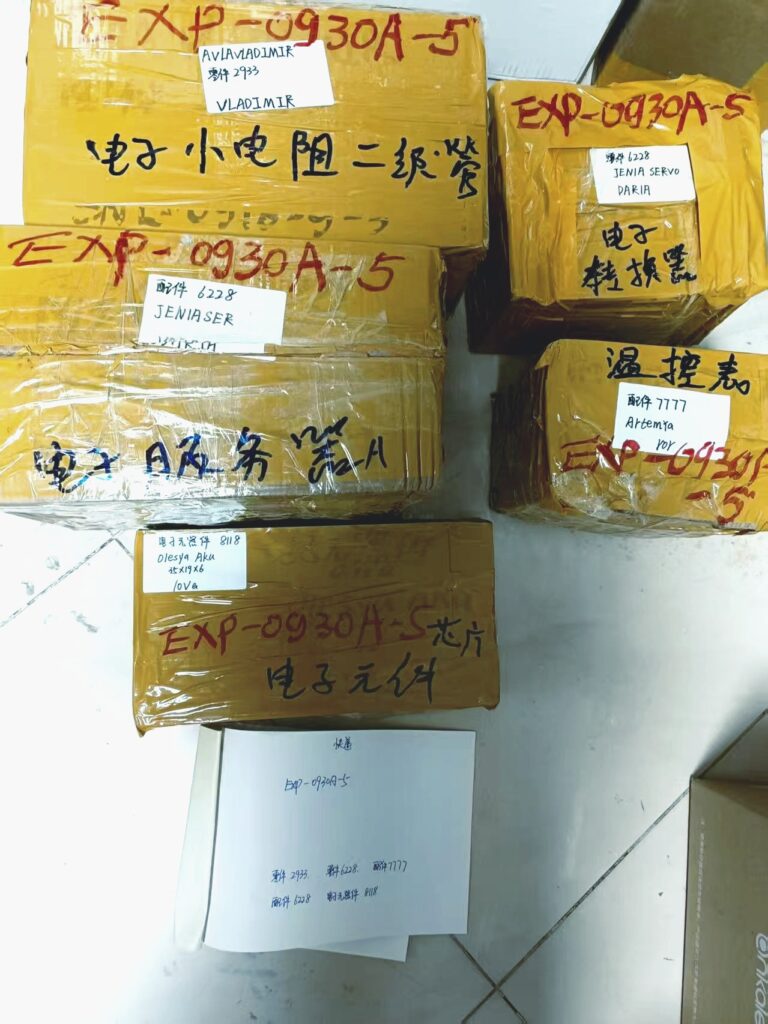 EXP-0930A-5
AVLAVLADIMIR
零件2933
VLADIMIR
电子小电阻二级管
EXP-0930A-5
零件6228
JENIA SERVO
DARIA
电子
转换器
EXP-0930A-5
配件 6228
JENIASER
电子服务器A
温控表
配件7777
Artemya
ror
EXP-0930A
-5
电子元器件 8118
Olesya Aku
35X19X6
lova
EXP-0930A-5 芯片
电子元件
快递
EXP-0930A-5
零件2933. 零件6228. 配件7777
配件6228 电子元器件 8118